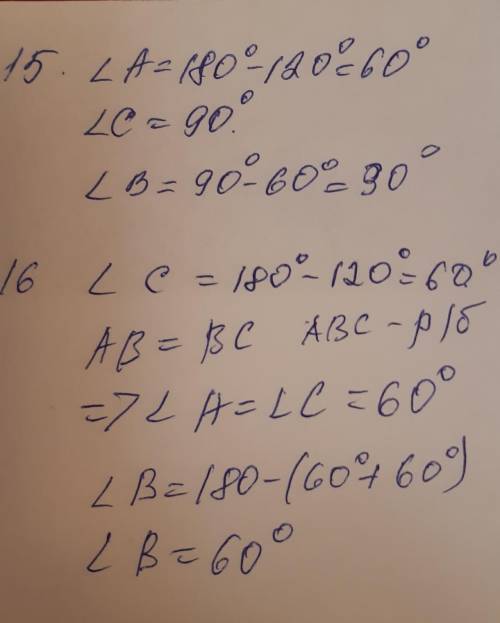 15. ∠A=180°-120°=60°
∠C=90°.
∠B=90°-60°=30°
16 ∠C=180°-120°=60°
AB=BC ABC-р/б
=>∠A=∠C=60°
∠B=180-(60°+60°)
∠B=60°